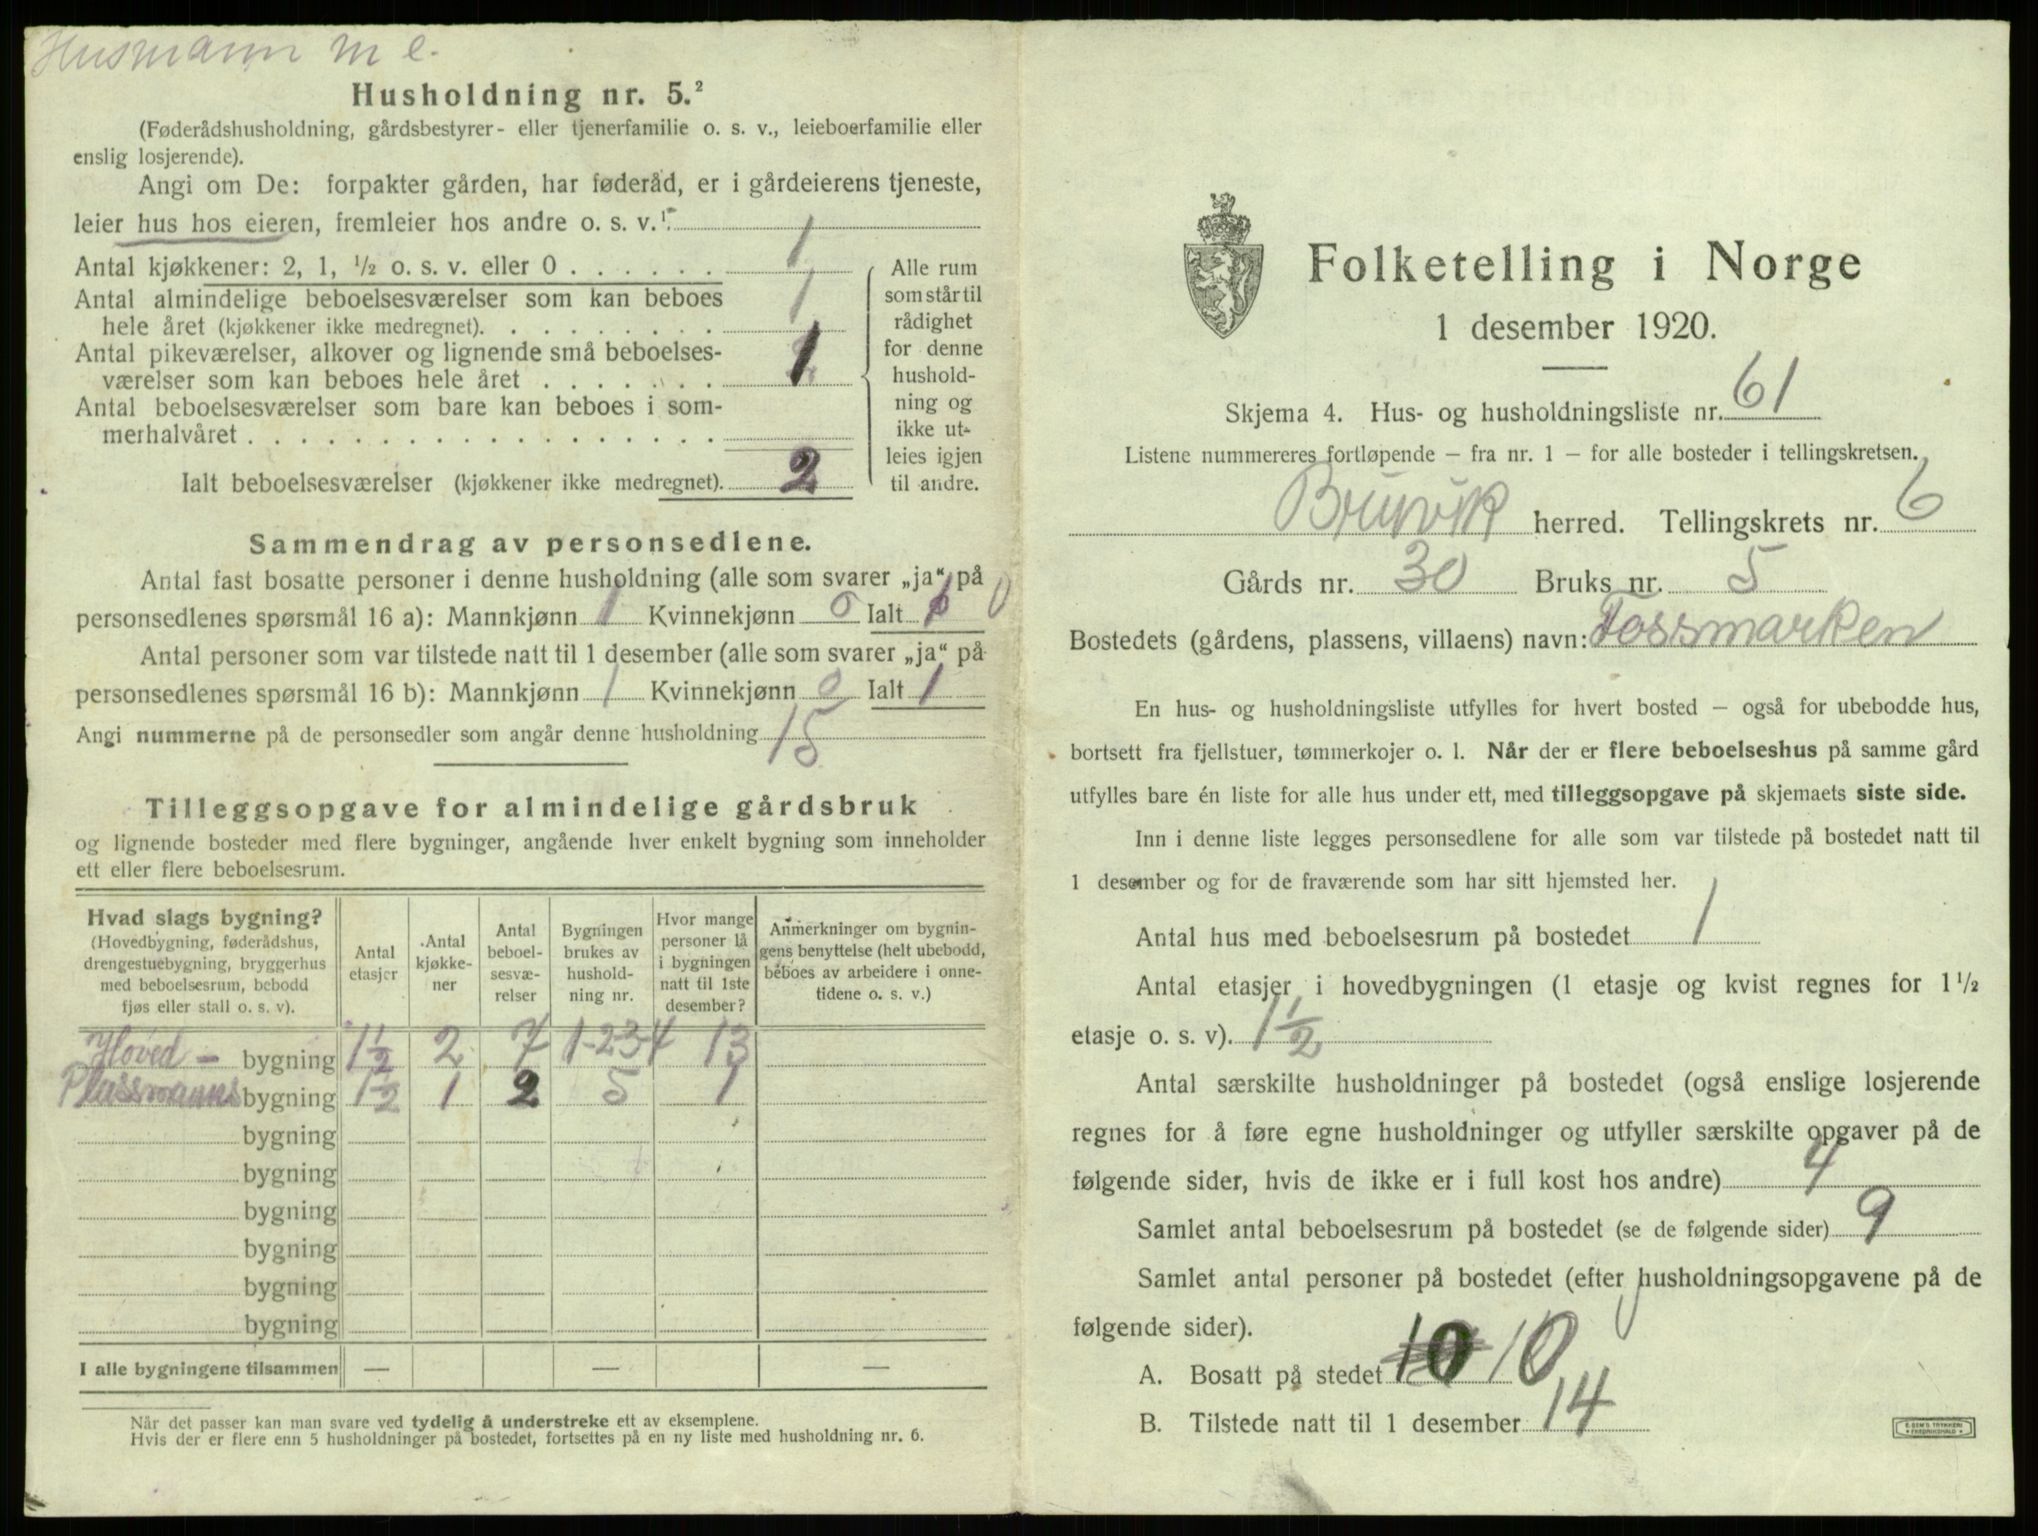 Husmann m e.
Husholdning nr. 5.²
(Føderådshusholdning, gårdsbestyrer- eller tjenerfamilie o. s. v., leieboerfamilie eller
enslig losjerende).
Angi om De: forpakter gården, har føderåd, er i gårdeierens tjeneste,
leier hus hos eieren, fremleier hos andre o. s. v.¹
Antal kjøkkener: 2, 1, ½ o. s. v. eller 0 . . . . . . 1
Antal almindelige beboelsesværelser som kan beboes
hele året (kjøkkener ikke medregnet). . . . . . . . . 1
Antal pikeværelser, alkover og lignende små beboelses-
værelser som kan beboes hele året . . . . . . . 1
Antal beboelsesværelser som bare kan beboes i som-
merhalvåret . . . . . . . . . . . . . . . . . .
Ialt beboelsesværelser (kjøkkener ikke medregnet). 2
Alle rum
som står til
rådighet
for denne
hushold-
ning og
ikke ut-
leies igjen
til andre.
Sammendrag av personsedlene.
Antal fast bosatte personer i denne husholdning (alle som svarer „ja“ på
personsedlenes spørsmål 16 a): Mannkjønn 1 Kvinnekjønn 0 Ialt 1 0
Antal personer som var tilstede natt til 1 desember (alle som svarer „ja“ på
personsedlenes spørsmål 16 b): Mannkjønn 1 Kvinnekjønn 0 Ialt 1
Angi nummerne på de personsedler som angår denne husholdning 15
Tilleggsopgave for almindelige gårdsbruk
og lignende bosteder med flere bygninger, angående hver enkelt bygning som inneholder
ett eller flere beboelsesrum.
Hvad slags bygning?
(Hovedbygning, føderådshus,
drengestuebygning, bryggerhus
med beboelsesrum, bebodd
fjøs eller stall o. s. v).
Antal
etasjer
Antal
kjøkke-
ner
Antal
beboel-
sesvæ-
relser
Bygningen
brukes av
hushold-
ning nr.
Hvor mange
personer lå
i bygningen
natt til 1ste
desember?
Anmerkninger om bygnin-
gens benyttelse (helt ubebodd,
beboes av arbeidere i onne-
tidene o. s. v.)
Hoved - bygning 1½ 2 7 1-2-3-4 13
Plassmanns bygning 1½ 1 2 5 1
bygning
bygning
bygning
bygning
bygning
bygning
I alle bygningene tilsammen — — —
Når det passer kan man svare ved tydelig å understreke ett av eksemplene.
Hvis der er flere enn 5 husholdninger på bostedet, fortsettes på en ny liste med husholdning nr. 6.
Folketelling i Norge
1 desember 1920.
Skjema 4. Hus- og husholdningsliste nr. 61
Listene nummereres fortløpende – fra nr. 1 – for alle bosteder i tellingskretsen.
Bruvik herred. Tellingskrets nr. 6
Gårds nr. 30 Bruks nr. 5
Bostedets (gårdens, plassens, villaens) navn: Fossmarken
En hus- og husholdningsliste utfylles for hvert bosted – også for ubebodde hus,
bortsett fra fjellstuer, tømmerkojer o. l. Når der er flere beboelseshus på samme gård
utfylles bare én liste for alle hus under ett, med tilleggsopgave på skjemaets siste side.
Inn i denne liste legges personsedlene for alle som var tilstede på bostedet natt til
1 desember og for de fraværende som har sitt hjemsted her.
Antal hus med beboelsesrum på bostedet 1
Antal etasjer i hovedbygningen (1 etasje og kvist regnes for 1½
etasje o. s. v). 1½
Antal særskilte husholdninger på bostedet (også enslige losjerende
regnes for å føre egne husholdninger og utfyller særskilte opgaver på de
følgende sider, hvis de ikke er i full kost hos andre) 4
Samlet antal beboelsesrum på bostedet (se de følgende sider) 9
Samlet antal personer på bostedet (efter husholdningsopgavene på de
følgende sider).
A. Bosatt på stedet 10 10
B. Tilstede natt til 1 desember 14
E. SEM'S TRYKKERI
FREDRIKSHALD